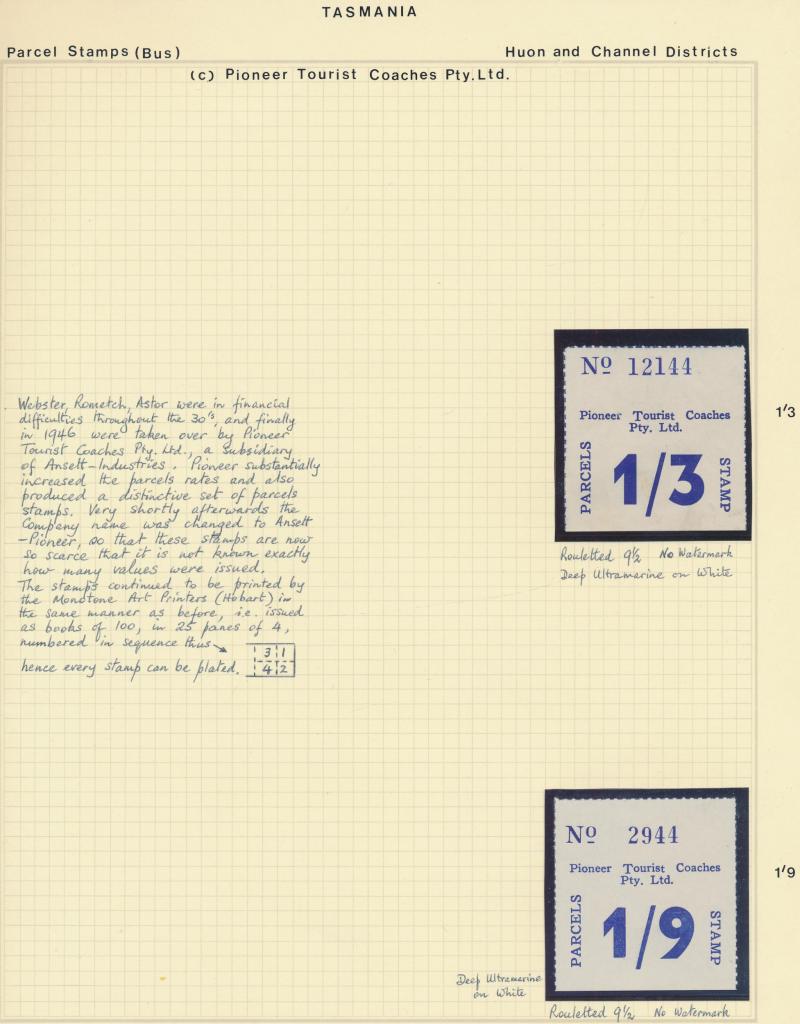 TASMANIA
Parcel Stamps (Bus)
Huon and Channel Districts
(c) Pioneer Tourist Coaches Pty. Ltd.
Nº 12144
Pioneer Tourist Coaches
Pty. Ltd.
PARCELS
1/3
STAMP
1'3
Rouletted 9½ No Watermark
Deep Ultramarine on White
Webster, Rometch, Astor were in financial
difficulties throughout the 30's, and finally
in 1946 were taken over by Pioneer
Tourist Coaches Pty. Ltd., a subsidiary
of Ansett-Industries. Pioneer substantially
increased the parcels rates and also
produced a distinctive set of parcels
stamps. Very shortly afterwards the
Company name was changed to Ansett
-Pioneer, so that these stamps are now
so scarce that it is not known exactly
how many values were issued.
The stamps continued to be printed by
the Monotone Art Printers (Hobart) in
the same manner as before, i.e. issued
as books of 100, in 25 panes of 4,
numbered in sequence thus
3 1
hence every stamp can be plated.
4 2
Nº 2944
Pioneer Tourist Coaches
Pty. Ltd.
PARCELS
1/9
STAMP
1'9
Deep Ultramarine
on White
Rouletted 9½ No Watermark